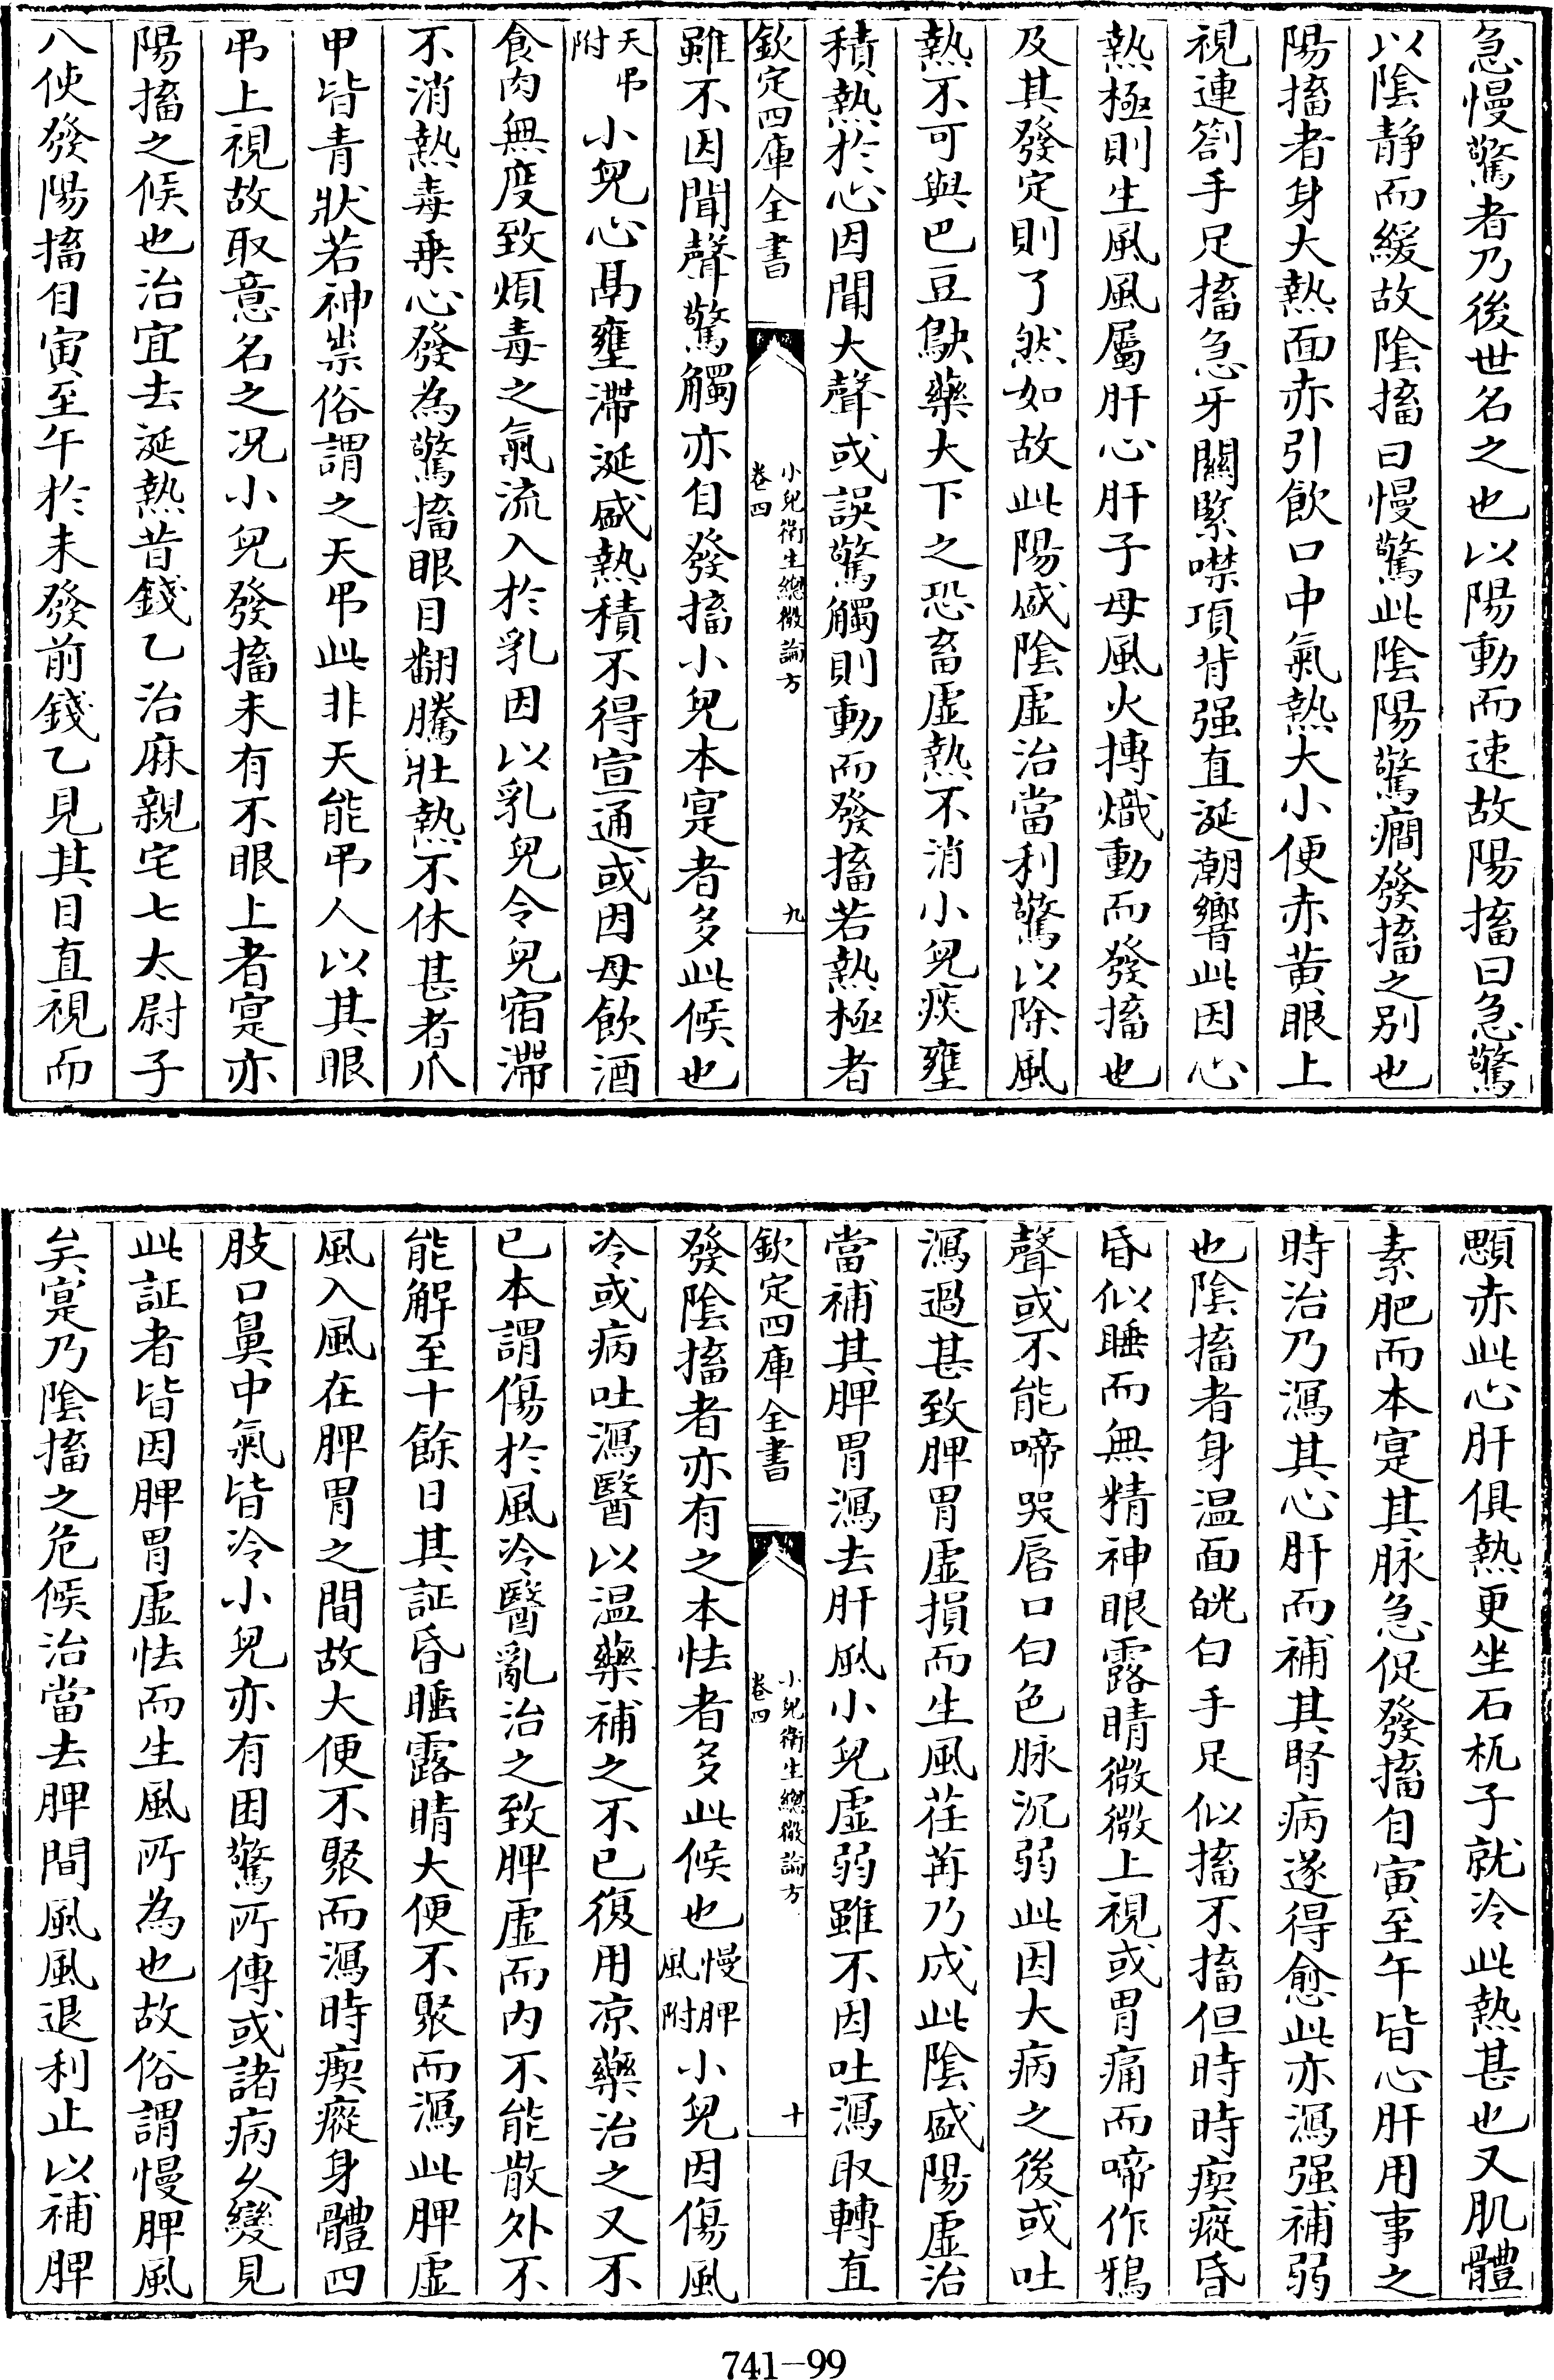 急慢驚者乃後世名之也以陽動而速故陽搐曰急驚
以陰靜而緩故陰搐曰慢驚此陰陽驚癇發搐之别也
陽搐者身大熱面赤引飲口中氣熱大小便赤黄眼上
視連劄手足搐急牙關緊噤項背强直涎潮響此因心
熱極則生風風屬肝心肝子母風火搏熾動而發搐也
及其發定則了然如故此陽盛陰虚治當利驚以除風
熱不可與巴豆駃藥大下之恐畜虚熱不消小兒痰壅
積熱於心因聞大聲或誤驚觸則動而發搐若熱極者
欽定四庫全書
小兒衛生總微論方
卷四
九
雖不因聞聲驚觸亦自發搐小兒本寔者多此候也
天弔
附
小兒心鬲壅滯涎盛熱積不得宣通或因母飲酒
食肉無度致煩毒之氣流入於乳因以乳兒令兒宿滯
不消熱毒乗心發為驚搐眼目翻騰壯熱不休甚者爪
甲皆青狀若神祟俗謂之天弔此非天能弔人以其眼
弔上視故取意名之况小兒發搐未有不眼上者寔亦
陽搐之候也治宜去涎熱昔錢乙治麻親宅七太尉子
八使發陽搐自寅至午於未發前錢乙見其目直視而
顋赤此心肝俱熱更坐石杌子就冷此熱甚也又肌體
素肥而本寔其脉急促發搐自寅至午皆心肝用事之
時治乃瀉其心肝而補其腎病遂得愈此亦瀉强補弱
也陰搐者身温面㿠白手足似搐不搐但時時瘈瘲昏
昏似睡而無精神眼露睛微微上視或胃痛而啼作鴉
聲或不能啼哭唇口白色脉沉弱此因大病之後或吐
瀉過甚致脾胃虚損而生風荏苒乃成此陰盛陽虚治
當補其脾胃瀉去肝風小兒虚弱雖不因吐瀉取轉直
欽定四庫全書
小兒衛生總微論方
卷四
十
發陰搐者亦有之本怯者多此候也
慢脾
風附
小兒因傷風
冷或病吐瀉醫以温藥補之不已復用凉藥治之又不
已本謂傷於風冷醫亂治之致脾虚而内不能散外不
能解至十餘日其証昏睡露睛大便不聚而瀉此脾虚
風入風在脾胃之間故大便不聚而瀉時瘈瘲身體四
肢口鼻中氣皆冷小兒亦有因驚所傳或諸病久變見
此証者皆因脾胃虚怯而生風所為也故俗謂慢脾風
矣寔乃陰搐之危候治當去脾間風風退利止以補脾
741-99